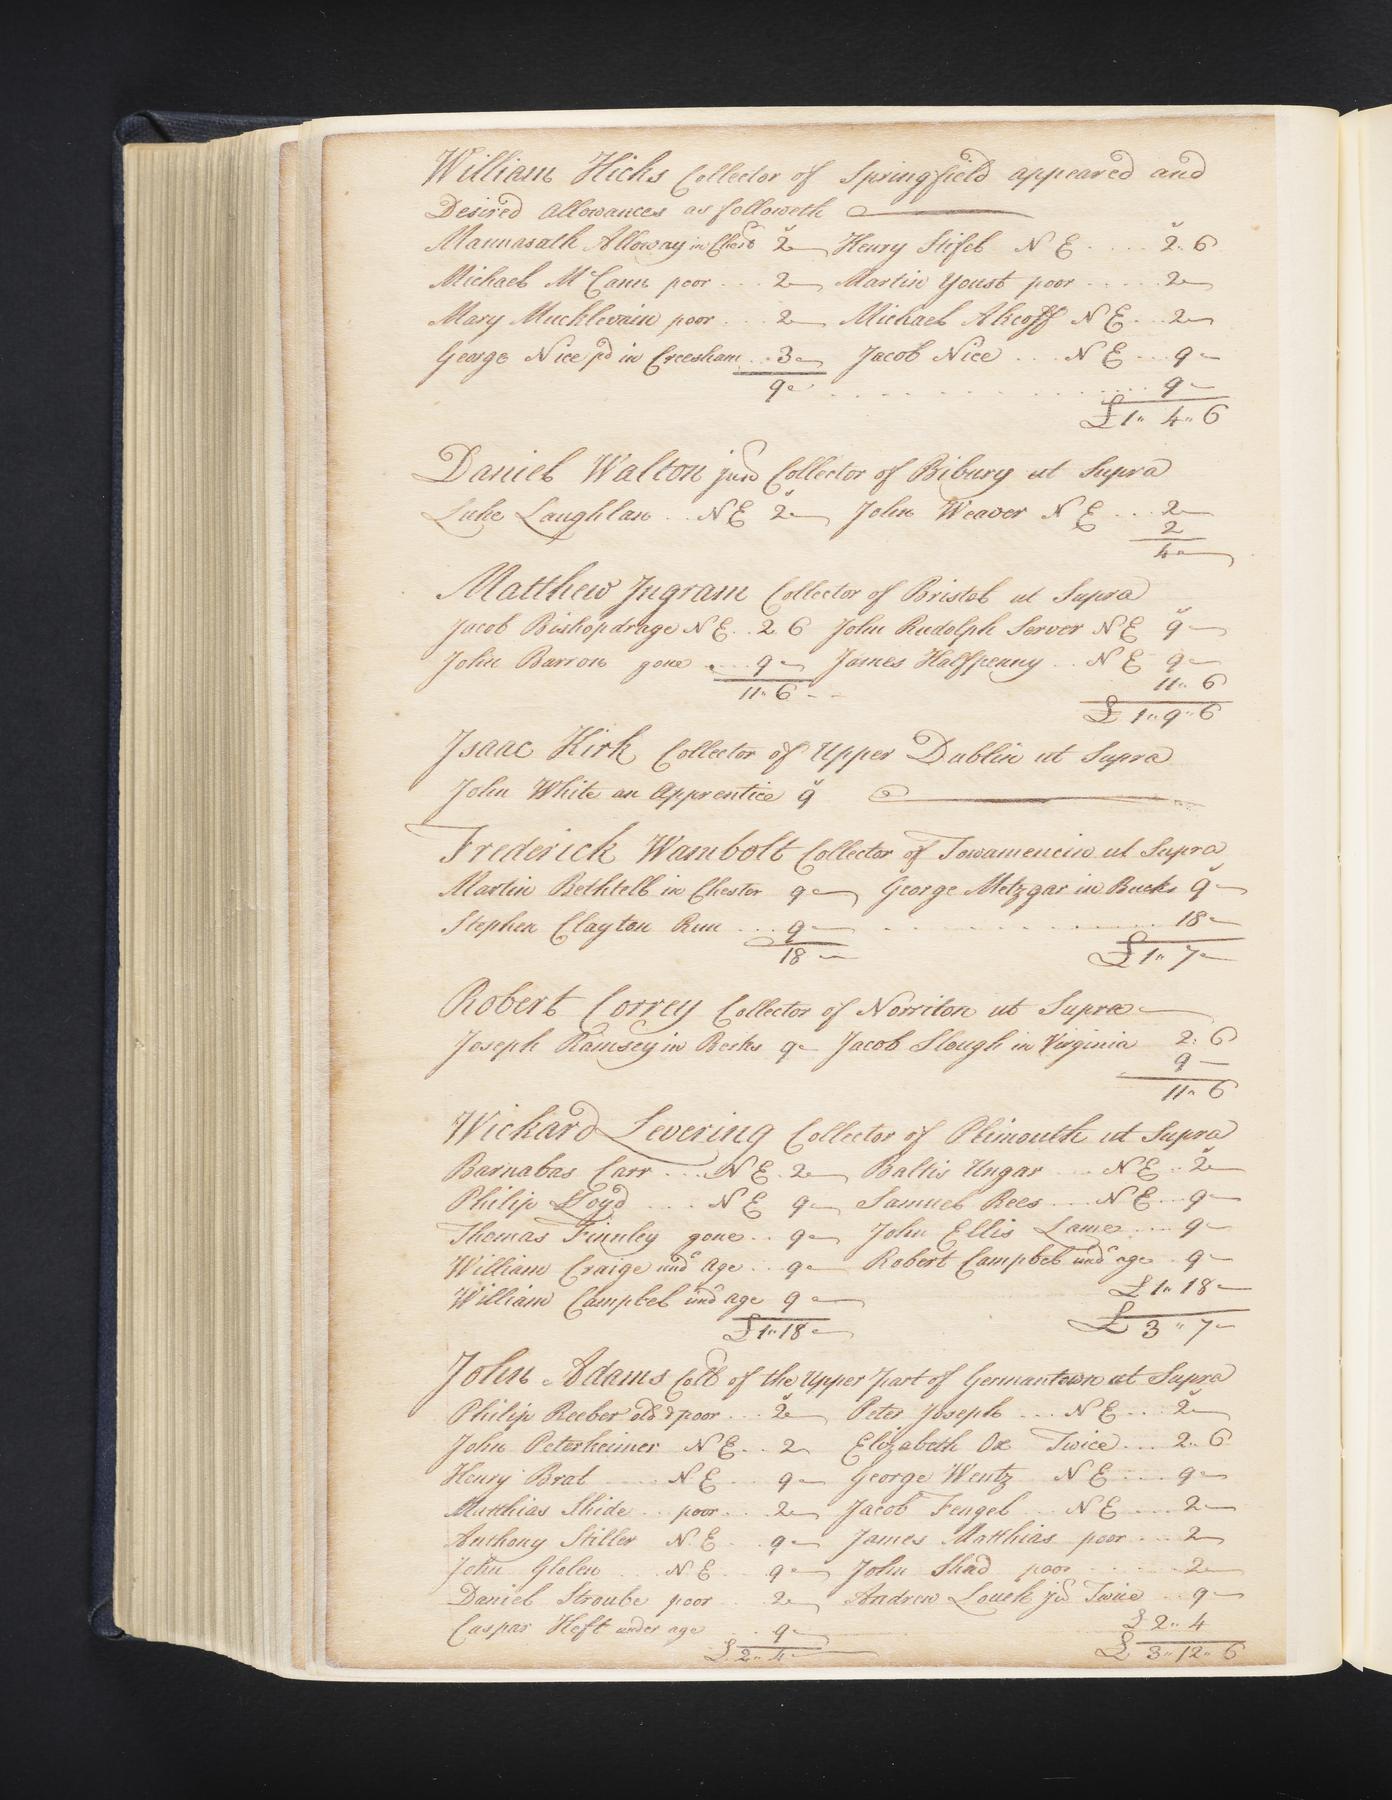 William Hicks Collector of Springfield appeared and
Desired Allowances as followeth
Mannasath Alloway in Chest.r 2 Henry Stifel N E .... 2.. 6
Michael McCann poor ... 2 Martin Youst poor ..... 2
Mary Mucklevain poor ... 2 Michael Alcoff N E .. 2
George Nice pd in Creesham .. 3 Jacob Nice ... N E ... 9
9 ........ 9
£1.. 4.. 6
Daniel Walton junr Collector of Bibury ut Supra
Luke Laughlan .. N E 2 John Weaver N E ... 2
2
4
Matthew Ingram Collector of Bristol ut Supra
Jacob Bishopdrage N E .. 2 6 John Rudolph Server N E 9
John Barron gone .... 9 James Halfpenny .. N E 9
11.. 6 -- 11.. 6
£ 1.. 9.. 6
Isaac Kirk Collector of Upper Dublin ut Supra
John White an Apprentice 9
Frederick Wambolt Collector of Towamencin ut Supra
Martin Bethtell in Chester 9 George Metzgar in Bucks 9
Stephen Clayton Run ... 9 ........ 18
18 £1.. 7
Robert Correy Collector of Norriton ut Supra
Joseph Ramsey in Berks 9 Jacob Slough in Virginia 2: 6
9
11.. 6
Wickard Levering Collector of Plimouth ut Supra
Barnabas Carr ... N E . 2 Baltis Ungar ... N E .. 2
Philip Lloyd .... N E 9 Samuel Rees ... N E ... 9
Thomas Finnley gone .. 9 John Ellis Lame ... 9
William Craige undr age .. 9 Robert Campbel undr age .. 9
William Campbel undr age 9 £1.. 18
£1..18 £ 3.. 7
John Adams Collr of the Upper Part of Germantown ut Supra
Philip Reeber old & poor ... 2 Peter Joseph ... N E ... 2
John Peterheimer N E .. 2 Elizabeth Ox Twice ... 2.. 6
Henry Brat .... N E ... 9 George Wentz N E .... 9
Matthias Shide .. poor ... 2 Jacob Fengel .. N E .... 2
Anthony Stiller N. E .. 9 James Matthias poor ... 2
John Glolen ... N E .. 9 John Shad poor ...... 2
Daniel Stroube poor .. 2 Andrew Louck jr Twice .. 9
Caspar Heft under age .. 9 £ 2.. 4
£ 2.. 4 £ 3.. 12.. 6